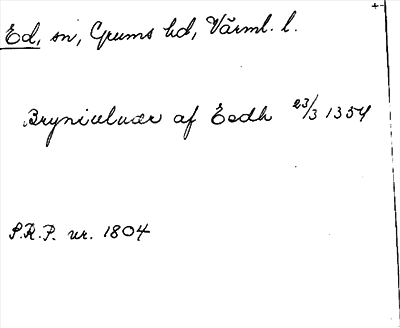 Ed, sn, Grums hd, Värml. l.
Bryniulucer af Eedh 23/3 1354
S.R.P. nr. 1804